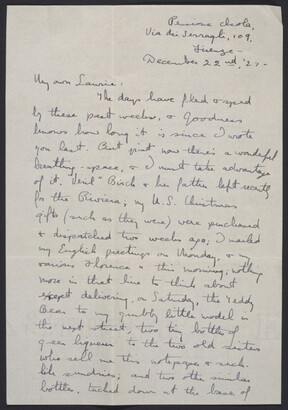 Pensione Casla,
Via dei Serragli, 109,
Firenze-
December 22nd, '27.-
My own Laurine:
The days have fled & sped
by these past weeks, & Goodness
knows how long it is since I wrote
you last. But just now there's a wonderful
breathing-space, & I must take advantage
of it. "Jeril" Birch & her father left recently
for the Riviera; my U.S. Christmas
gifts (such as they were) were purchased
& dispatched two weeks ago; I mailed
my English greetings on Monday, & my
various Florence this morning; nothing
more in that line to think about
except delivering, on Saturday, the Teddy
Bear to my grubby little model in
the next street, two tiny bottles of
green liqueur to the two old sisters
who sell me this notepaper & such-
like sundries; and two other similar
bottles, tucked down at the base of